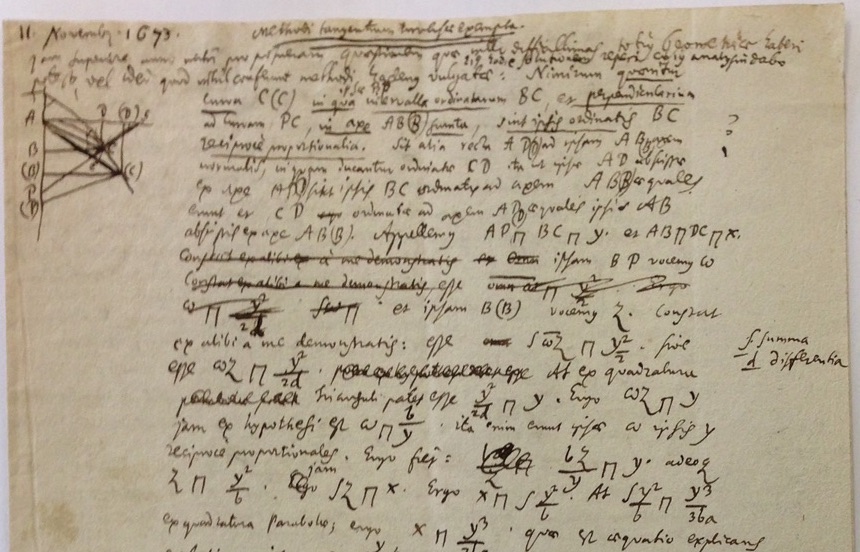 11. Novembr. 1673. Methodi tangentium inversae exempla.
Jam superiore anno mihi proposueram quaestionem quae inter difficillimas totius Geometriae haberi
potest, vel ideo quod nihil conferunt methodi hactenus vulgatae: hodie solutionem reperi cujus analysin dabo
Nimirum quaeritur
ipsa BP
curva C(C) in qua intervalla ordinatarum BC, et perpendicularium
ad curvam PC, in axe AB(B) sumta, sint ipsis ordinatis BC
reciproce proportionalia. Sit alia recta AD(D) ad ipsam AB(B)
normalis, in quam ducantur ordinatae CD ita ut ipsae AD abscissae
ex axe AD(D) sint ipsis BC ordinatis ad axem AB(B) aequales
erunt et CD ordinatae ad axem AD(D) aequales ipsis AB
abscissis ex axe AB(B). Appellemus AD ⊓ BC ⊓ y. et AB ⊓ DC ⊓ x.
Constat ex alibi a me demonstratis et ipsam BP vocemus ω
Constat ex alibi a me demonstratis, esse
ω ⊓ y²/2d et ipsam B(B) vocemus z. Constat
ex alibi a me demonstratis: esse ∫ωz ⊓ y²/2. sive
esse ωz ⊓ y²/2d. At ex quadratura
trianguli patet esse y²/2d ⊓ y. Ergo ωz ⊓ y
jam ex hypothesi est ω ⊓ b/y. ita enim erunt ipsae ω ipsis y
reciproce proportionales. Ergo fiet: bz/y ⊓ y. adeoq
z ⊓ y²/b. jam ∫z ⊓ x. Ergo x ⊓ ∫ y²/b. At ∫y²/b ⊓ y³/3ba
ex quadratura Parabolae; ergo x ⊓ y³/3ba. quae est aequatio explicans
∫. summa
d differentia
?
A
B
(B)
P
(P)
D
(D)
C
(C)